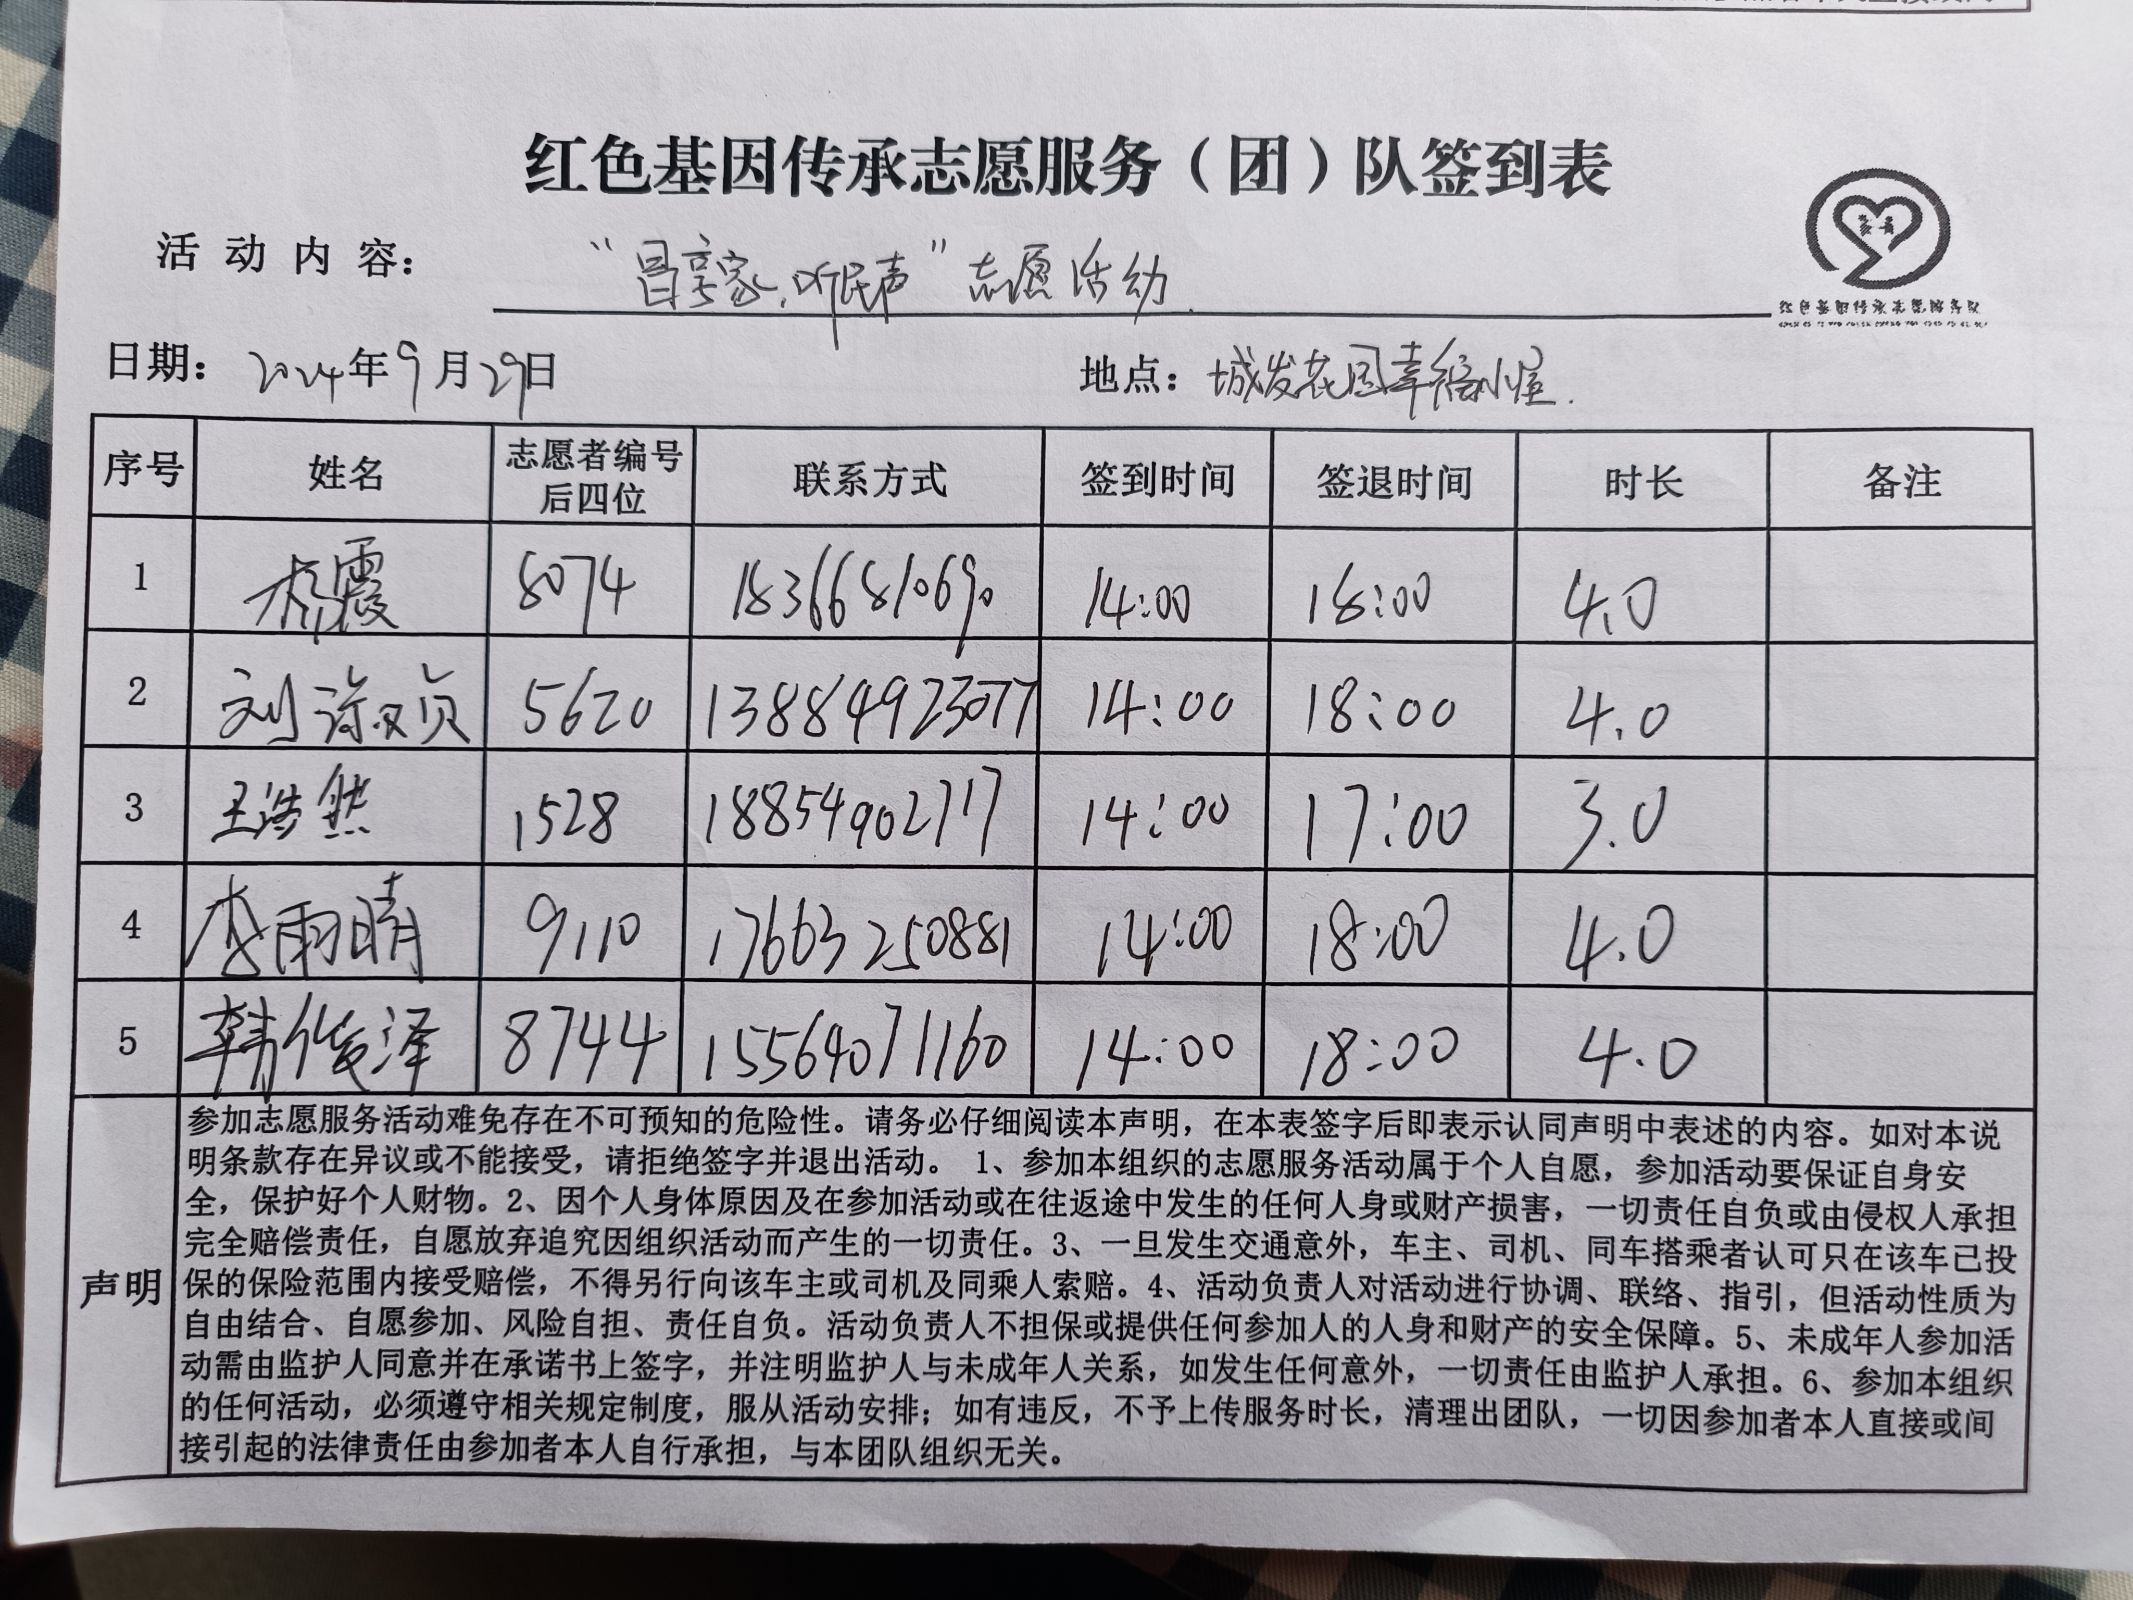 红色基因传承志愿服务（团）队签到表
活动内容： “冒享家，听民声”志愿活动
红色基因传承志愿服务队
日期： 2024年9月29日 地点： 城发花园幸福小屋.
序号 姓名 志愿者编号后四位 联系方式 签到时间 签退时间 时长 备注
1 杨霞 8074 18366810690 14:00 18:00 4.0
2 刘 5620 13884923077 14:00 18:00 4.0
3 王浩然 1528 18854902717 14:00 17:00 3.0
4 李雨晴 9110 17663250881 14:00 18:00 4.0
5 韩俊泽 8744 15564071160 14:00 18:00 4.0
声明
参加志愿服务活动难免存在不可预知的危险性。请务必仔细阅读本声明，在本表签字后即表示认同声明中表述的内容。如对本说
明条款存在异议或不能接受，请拒绝签字并退出活动。 1、参加本组织的志愿服务活动属于个人自愿，参加活动要保证自身安
全，保护好个人财物。2、因个人身体原因及在参加活动或在往返途中发生的任何人身或财产损害，一切责任自负或由侵权人承担
完全赔偿责任，自愿放弃追究因组织活动而产生的一切责任。3、一旦发生交通意外，车主、司机、同车搭乘者认可只在该车已投
保的保险范围内接受赔偿，不得另行向该车主或司机及同乘人索赔。4、活动负责人对活动进行协调、联络、指引，但活动性质为
自由结合、自愿参加、风险自担、责任自负。活动负责人不担保或提供任何参加人的人身和财产的安全保障。5、未成年人参加活
动需由监护人同意并在承诺书上签字，并注明监护人与未成年人关系，如发生任何意外，一切责任由监护人承担。6、参加本组织
的任何活动，必须遵守相关规定制度，服从活动安排；如有违反，不予上传服务时长，清理出团队，一切因参加者本人直接或间
接引起的法律责任由参加者本人自行承担，与本团队组织无关。